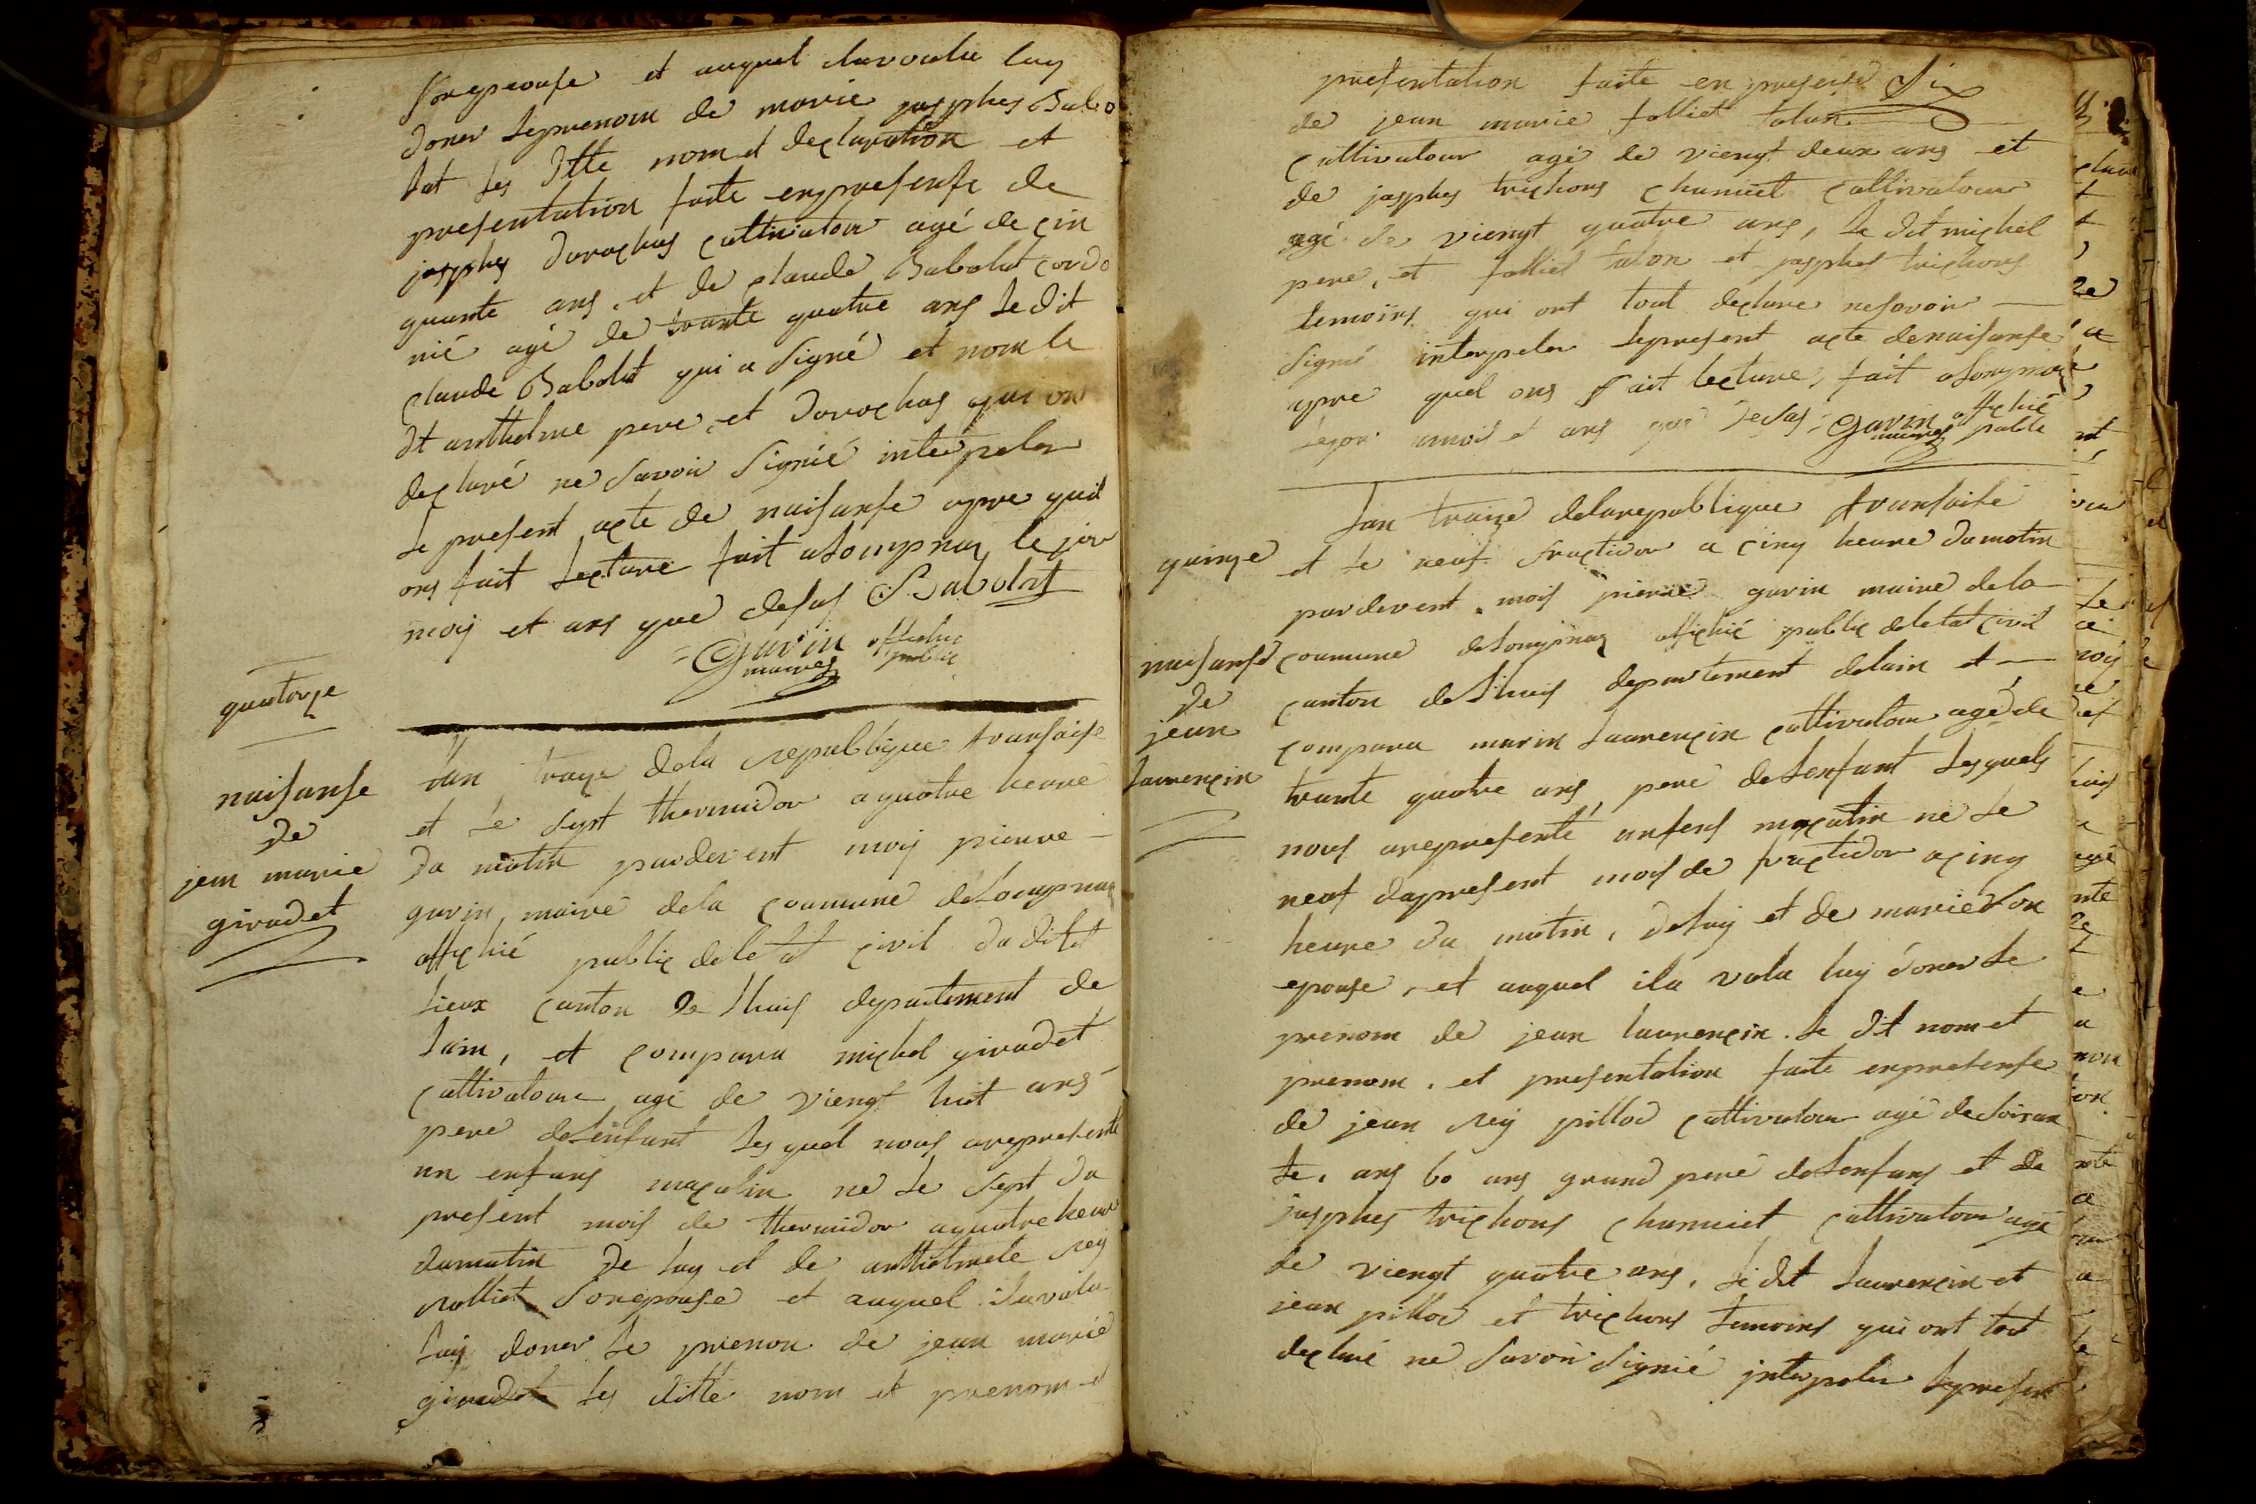 son epouse et auquel ila voulu luy
doner le prenom de marie josphes Babo
lat les ditte nom et declaration et
presentation faite en presense de
josphes durochas cultivatour agé de cin
quante ans, et de claude Babolat cordo
nié agé de trante quatre ans le dit
claude Babolat qui a signé et nom le
dt anthelme pere, et durochas qui on
declaré ne savoir signié interpeler
le present acte de naisanse apre quil
ons fait lecture fait a Lompnaz le jour
mois et ans que desus C Babolat
Gavin maire offichié public
quatorze
naisanse
de
jean marie
girodet
Lan traize dela republique fransaise
et le sept thermidor a quatre heure
du matin pardevent mois pierre
gavin, maire dela coumune de Lompnaz
offichié public deletat civil du dit
lieux canton de Lhuis departement de
Lain, et compara michel girodet
cultivatour agé de viengt huit ans
pere delenfant lesquel nous a represente
un enfans maculin né le sept du
present mois de thermidor a quatre heur
dumatin de luy et de anthelmete rey
rolliet son epouse et auquel ila volu
luy doner le prenom de jean marie
girodet les ditte nom et prenom et
presentation faite en presense Six
de jean marie folliet talon
cultivatour agé de viengt deux ans et
de josphes trichons chamiet cultivatour
agé de viengt quatre ans, le dit michel
pere, et folliet talon et josphes trichons
temoins qui ont tout declare nesavoir
signié interpeler le present acte denaisanse
apre quel ons fait lecture, fait a Lompnaz
lejour mois et ans que desus Gavin maire offichié public
quinze
naisanse
de
jean
Laurencin
Lan traize delarepublique fransaise
et le neuf fructidor a cinq heure du matin
pardevent mois pierre gavin maire de la
coumune de Lompnaz offichié public deletat civil
canton de Lhuis departement delain et
compara marin Laurencin cultivatour agé de
trante quatre ans, pere delenfant lesquels
nous a represente un fens maculin né le
neuf du present mois de fructidor a cinq
heure du matin, de luy et de marie son
epouse, et auquel ila volu luy doner le
prenom de jean laurencin. le dit nom et
prenom, et presentation faite en presense
de jean rey pillod cultivatour agé de soixan
te, ans 60 ans grand pere delenfans et de
josphes trichons chamiet cultivatour agé
de viengt quatre ans, le dit Laurencin et
jean pillod et trichons temoins qui ont tout
declaré ne savoir signié interpeler lepresent